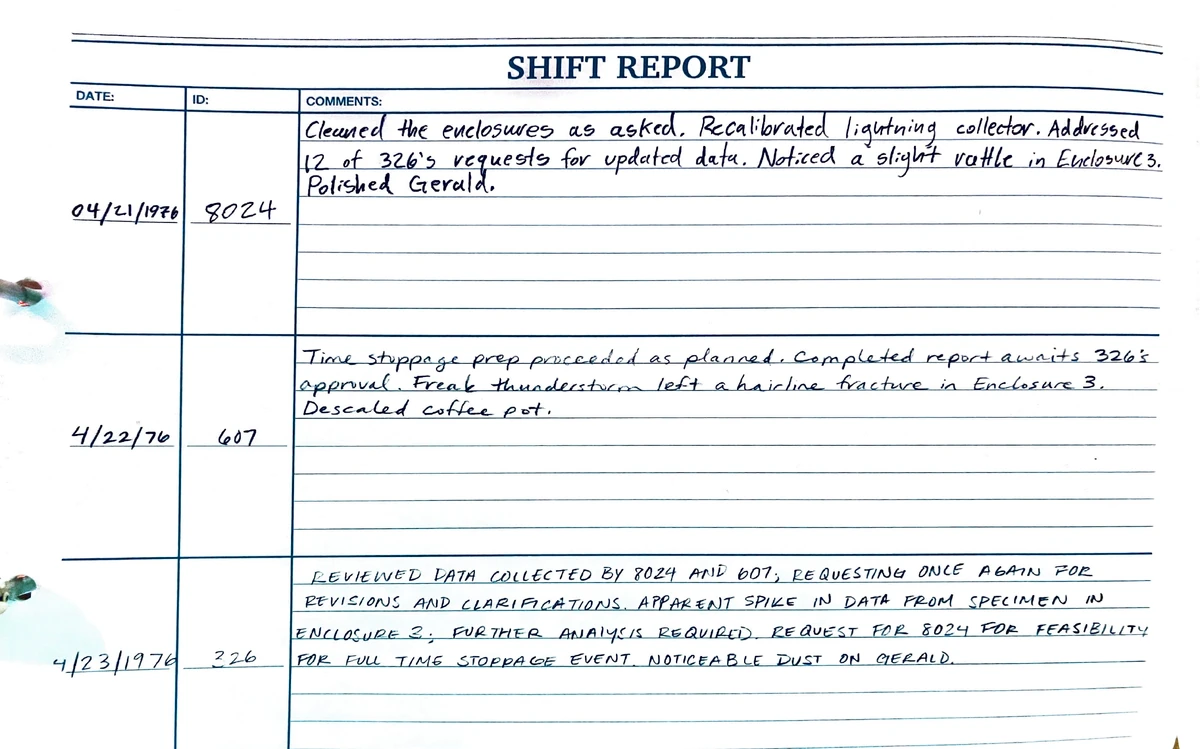 SHIFT REPORT
DATE:
ID:
COMMENTS:
Cleaned the enclosures as asked. Recalibrated lightning collector. Addressed
12 of 326's requests for updated data. Noticed a slight rattle in Enclosure 3.
Polished Gerald.
04/21/1976
8024
Time stoppage prep proceeded as planned. Completed report awaits 326's
approval. Freak thunderstorm left a hairline fracture in Enclosure 3.
Descaled coffee pot.
4/22/76
607
REVIEWED DATA COLLECTED BY 8024 AND 607; REQUESTING ONCE AGAIN FOR
REVISIONS AND CLARIFICATIONS. APPARENT SPIKE IN DATA FROM SPECIMEN IN
ENCLOSURE 3; FURTHER ANALYSIS REQUIRED. REQUEST FOR 8024 FOR FEASIBILITY
FOR FULL TIME STOPPAGE EVENT. NOTICEABLE DUST ON GERALD.
4/23/1976
326